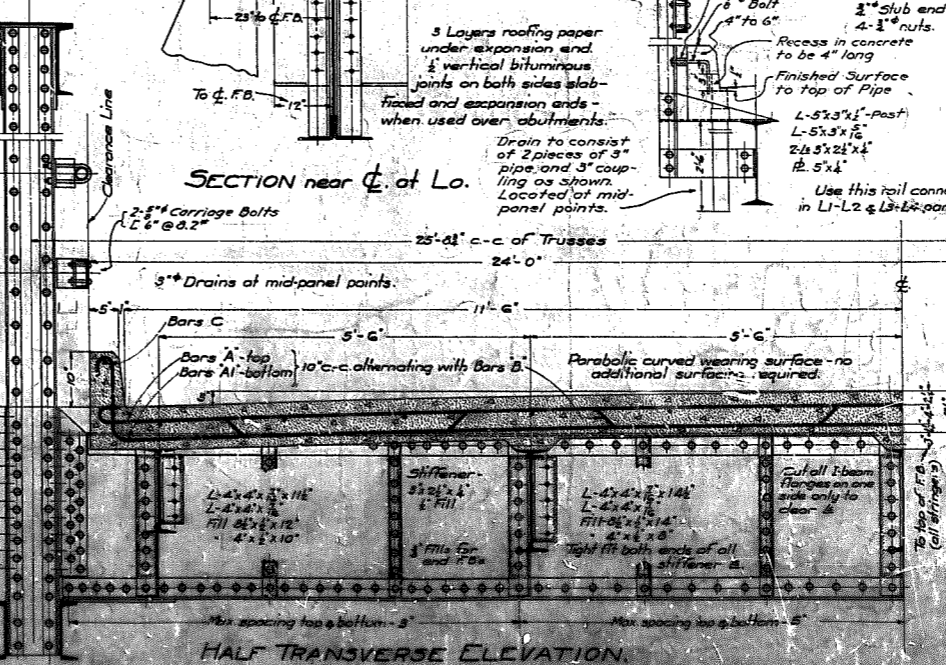 23" to ₵ F.B.
To ₵ F.B.
12"
3 Layers roofing paper
under expansion end.
½" vertical bituminous
joints on both sides slab-
fixed and expansion ends-
when used over abutments.
Bolt
4" to 6"
¾"⌀ Stub end
4-¾"⌀ nuts.
Recess in concrete
to be 4" long
Finished Surface
to top of Pipe
L-5"x3"x½"-Post
L-5"x3"x5/16"
2-Ls 3"x2½"x¼"
PL 5"x¼"
Use this rail conn
in L1-L2 & L3-L4 pan
Drain to consist
of 2 pieces of 3"
pipe, and 3" coup-
ling as shown.
Located at mid-
panel points.
SECTION near ₵ at Lo.
Clearance Line
2-⅝"⌀ Carriage Bolts
[ 6" @ 8.2#
25'-8¾" c.-c. of Trusses
24'-0"
₵
3"⌀ Drains at mid-panel points.
5"
1"
11'-6"
5'-6"
5'-6"
Bars C
10"
Bars "A"-top
Bars "A1"-bottom
10" c.-c. alternating with Bars B.
Parabolic curved wearing surface-no
additional surfacing required.
Stiffener-
3"x2½"x¼"
Fill
L-4"x4"x
L-4"x4"x
Fill
4"x½"x10"
Fills for
and F.Bs
L-4"x4"x
L-4"x4"x
Fill
4"x½"x8"
Tight fit both ends of all
stiffener Ls.
Cut all I-beam
flanges on one
side only to
clear Ls
To top of F.B.
(all stringers)
Max. spacing top & bottom-3"
Max. spacing top & bottom-5"
HALF TRANSVERSE ELEVATION.